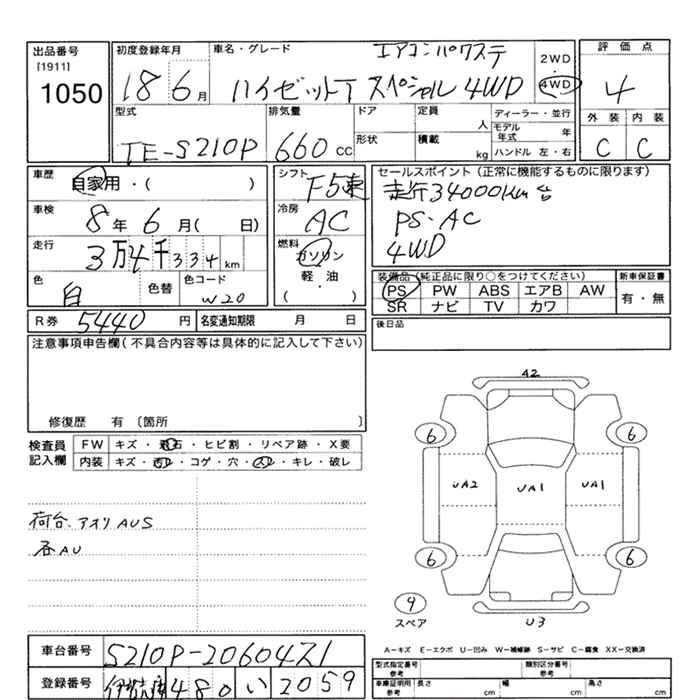 出品番号 [1911] 1050
初度登録年月 18 6月
車名・グレード エアコンパワステ
ハイゼットT スペシャル 4WD
2WD
4WD
評価点 4
外装 内装
C C
型式 TE-S210P
排気量 660cc
ドア
形状
定員 人
積載 kg
ディーラー・並行
モデル年式 年
ハンドル 左・右
車歴 自家用・( )
車検 8年 6月( 日)
走行 3万4千334km
色 白 色替 色コード W20
シフト F5速
冷房 AC
燃料 ガソリン
軽・油
( )
セールスポイント(正常に機能するものに限ります)
走行34000km台
PS・AC
4WD
装備品(純正品に限り○をつけてください)
PS PW ABS エアB AW
SR ナビ TV カワ
新車保証書
有・無
R券 5440円 名変通知期限 月 日
後日品
注意事項申告欄(不具合内容等は具体的に記入して下さい)
修復歴 有 〔箇所 〕
検査員記入欄
FW キズ・飛石・ヒビ割・リペア跡・X要
内装 キズ・汚レ・コゲ・穴・スレ・キレ・破レ
荷台、アオリ AUS
各AU
A2
6 6
UA2 UA1 UA1
6 6
4
スペア
U3
A-キズ E-エクボ U-凹み W-補修跡 S-サビ C-腐食 XX-交換済
車台番号 S210P-2060471
登録番号 480 い 2059
型式指定番号 参考
類別区分番号 参考
車庫証明用 参考 長さ cm 幅 cm 高さ cm